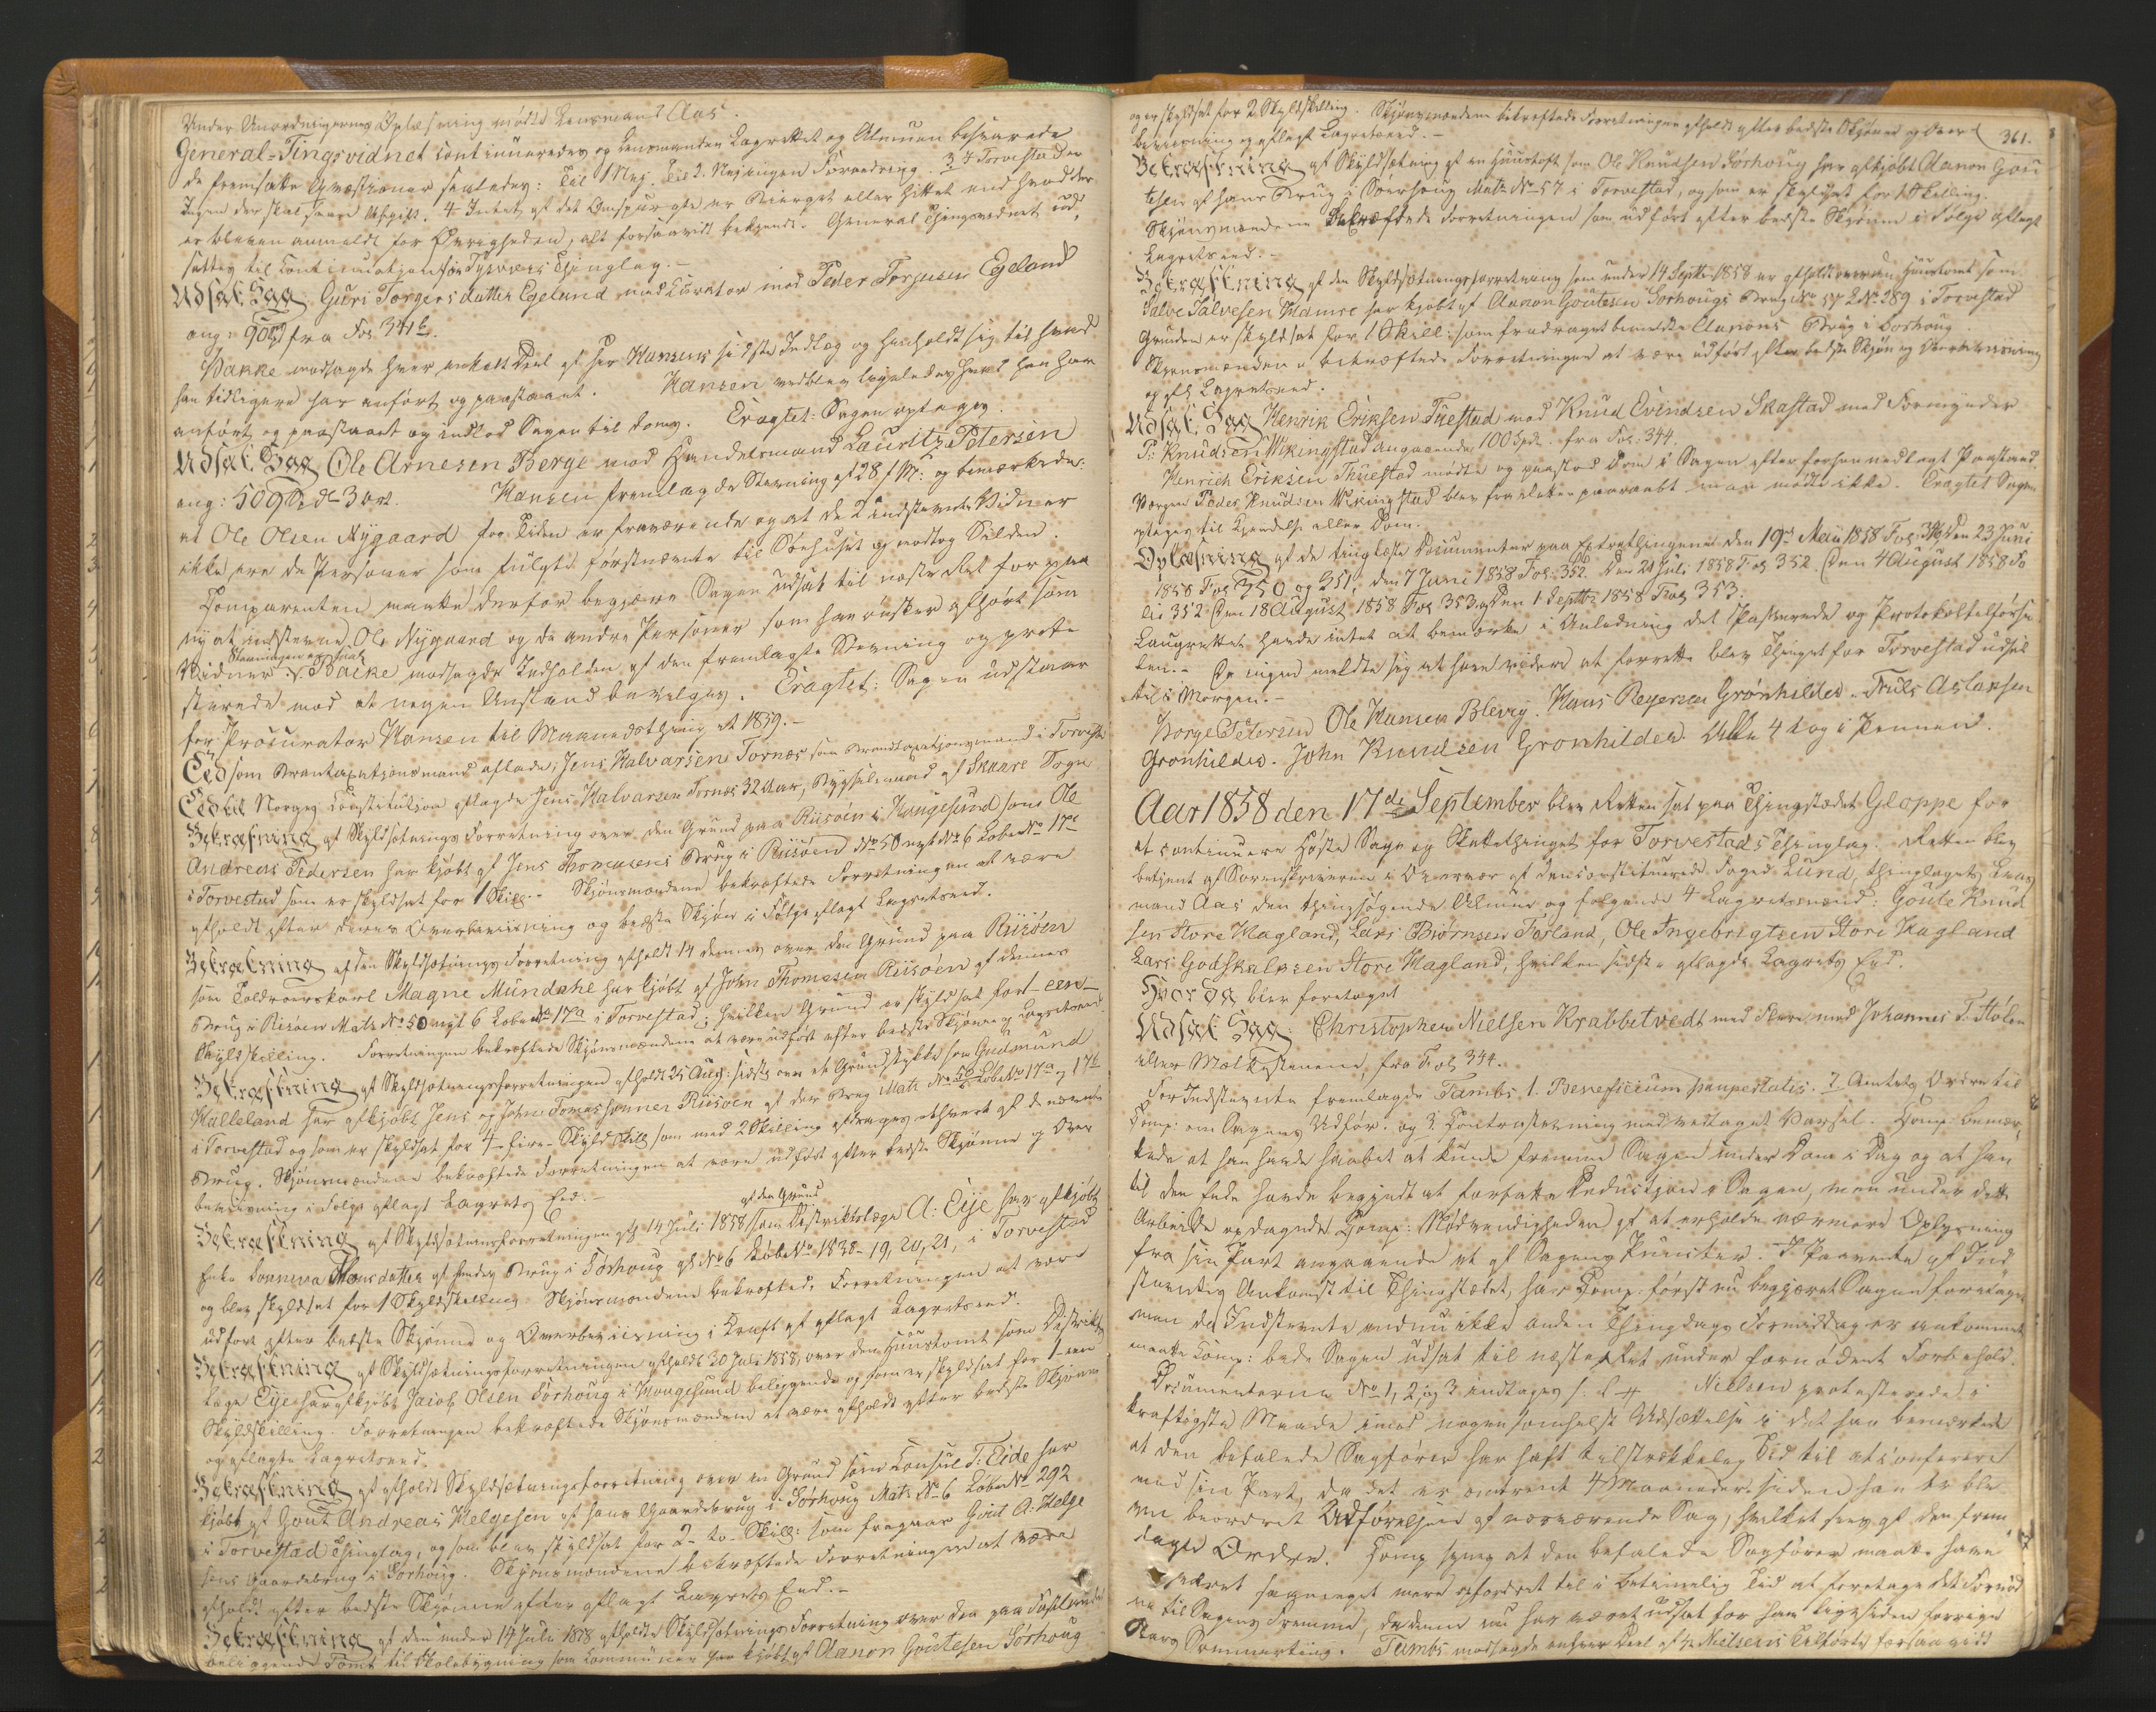 Under Anordningernes Oplæsning mødte Lensmand Aas.
General-Tingsvidnet continueredes og Lensmanden Lagrettet og Almuen besvarede
de fremsatte Qvæstioner saaledes: Til 1 Nej. Til 2. Nej ingen Forandring. 3 I Torvestad er
Ingen der skal svare Afgift. 4 Intet af det Omspurgte er Bierget eller hittet end hvad der
er bleven anmeldt for Øvrigheden, alt forsaavidt bekjendt. General Thingsvidnet ud-
sattes til Continuation for Tysvers Thinglag.-
Udsat Sag Guri Torgersdatter Egeland med Curator mod Peder Torjusen Egeland
ang: fra Fol. 341b.
Bakke modsagde hver enkelt Deel af Hr Hansens sidste Indlæg og henholdt sig til hvad
han tidligere har anført og paastaaet. Hansen vedblev ligeledes hvad han har
anført og paastaaet og indlod Sagen til Doms. Eragtet: Sagen optages.
Udsat Sag Ole Arnesen Berge mod Handelsmand Lauritz Petersen
ang: 509 Spd 3 ort. Hansen fremlagde Stevning af 28 f: M: og bemærkede:
at Ole Olsen Nygaard for Tiden er fraværende og at de 2 indstevnte Vidner
ikke ere de Personer som fulgte førstnævnte til Søehuset og modtog Silden.
Comparenten maatte derfor begjære Sagen udsat til næste Ret for paa
ny at indstevne Ole Nygaard og de andre Personer som han ønsker afhørt som
Vidner. Bakke modsagde Indholden af den fremlagte Stevning og prote
sterede mod at nogen Anstand bevilges. Eragtet: Sagen udstaaer
for Procurator Hansen til Mai 1859.-
Eed som Brantaxationsmand aflade: Jens Halvarsen Tornæs som Brandtaxationsmand i Torvestad
Eed til Norges Constitution aflagde Jens Halvarsen Tornæs 32 Aar, Bygselmand af Skaare Sogn
Bekræftning af Skyldsætnings Forretning over den Grund paa Riisøen i Haugesund som Ole
Andreas Pedersen har kjøbt af Jens Thomasens Brug i Riisøen No 50 nyt No 6 Løbe No 17c
i Torvestad som er skyldsat for 1 Skill.- Skjønsmændene bekræftede Forretningen at være
afholdt efter deres Overbeviisning og bedste Skjøn i Følge aflagt Lagretseed.
Bekræftning af den Skyldsætnings Forretning afholdt 14 dennes over den Grund paa Riisøen
som Toldroerskarl Magne Mündahl har kjøbt af John Thomasen Riisøen af dennes
Brug i Risøen Matr No 50 nyt 6 Løbe No 17a i Torvestad; hvilken Grund er skyldsat for 1 - een -
Skyldskilling. Forretningen bekræftede Skjønsmændene at være udført efter bedste Skjøn og Lagretseed
Bekræftning af Skyldsætningsforretningen afholdt 25 Aug: sidste over et Grundstykke som Gudmund
Halleland har afkjøbt Jens og John Tomassønner Riisøen af der Brug Matr No 50/6 Løbe No 17a og 17b
i Torvestad og som er skyldsat for 4 - fire - Skyldskill som med 2 Skilling afdrages ethvert af de nævnte
Brug. Skjønsmændene bekræftede Forretningen at være udført efter bedste Skjønne og Over
beviisning i Følge aflagt Lagrets Eed.-
af den Grund
Bekræftning af Skyldsætnsforretningen af 14 Juli 1858 som Distriktslæge A: Eije har afkjøbt
Enke Tonsdatter af hendes Brug i Sørhoug af No 6 Løbe No 1838- 19, 20, 21, i Torvestad
og blev skyldsat for 1 Skyldskilling. Skjønsmændene bekræftede Forretningen at være
udført efter bedste Skjønne og Overbeviisning i Kraft af aflagt Lagretseed.
Bekræftning af Skyldsætningsforretningen afholdt 30 Juli 1858, over den Huustomt som Distrikts
læge Eije har afkjøbt Jacob Olsen Sørhoug i Hougesund beliggende og som er skyldsat for 1 een
Skyldskilling. Forretningen bekræftede Skjønsmændene at være afholdt efter bedste Skjønne
og aflagte Lagretseed.
Bekræftning af afholdt Skyldsætningsforretning over en Grund som Consul T: Eide har
kjøbt af Gout Andreas Helgesen af hans Gaardebrug i Sørhoug Matr No 6 Løbe No 292
i Torvestad Thinglag, og som blev skyldsat for 2 - to - Skill: som fragaar Gout A: Helge
sens Gaardebrug i Sørhoug. Skjønsmændene bekræftede Forretningen at være
afholdt efter bedste Skjønne efter aflagt Lagrets Eed.-
Bekræftning af den under 14 Juli 1858 afholdte Skyldsætnings Forretning over den paa
beliggende Tomt til Skolebygning som Communen har kjøbt af Aanon Goutesen Sørhoug
361.
og er skyldsat for 2 Skyldskilling. Skjønsmændene bekræftede Forretningen afholdt efter bedste Skjønne og Over
beviisning og aflagt Lagretseed.-
Bekræftning af Skyldsætning af en Huustoft som Ole Knudsen Sørhoug har afkjøbt Aanon Gou
tesen af hans Brug i Sørhoug Matr No 57 i Torvestad, og som er skyldsat for 1 Skilling.
Skjønsmændene bekræftede Forretningen som udført efter bedste Skjønne i Følge aflagt
Lagretseed.-
Bekræftning af den Skyldsætningsforretning som under 14 Septbr 1858 er afholdt over den Huustomt som
Salve Salvesen Hamre har kjøbt af Aanon Goutesen Sørhougs Brug No 57 L No 289 i Torvestad
Grunden er skyldsat for 1 Skill: som fradraget bemeldte Aanons Brug i Sørhoug.
Skjønsmændene bekræftede Forretningen at være udført efter bedste Skjøn og Overbeviisning
og aft Lagretseed.
Udsat Sag Henrik Eriksen Tuestad mod Knud Evindsen Skastad med Formynder
P: Knudsen Wikingstad angaaende 100 Spd. fra Fol. 344.
Henrich Eriksen Thuestad mødte og paastod Dom i Sagen efter forhen nedlagt Paastand
Værgen Peder Knudsen Wikingstad blev paaraabt men mødte ikke. Eragtet Sagen
optages til Kjendelse eller Dom.
Oplæsning af de tinglæste Documenter paa Extrathingene den 19de Mai 1858 Fol. 349, den 23 Juni
1858 Fol 350 og 351, den 7 Juni 1858 Fol: 352. Den 21 Juli 1858 Fol 352. Den 4 August 1858 Fo
lio 352 Den 18 August 1858 Fol 353. og Den 1 Septbr 1858 Fol 353.
Laugrettet havde intet at bemærke i Anledning det Passerede og Protokoltilførse
len.- Da ingen meldte sig at have videre at forrette blev Thinget for Torvestad udsat
til i Morgen.-
Børge Petersen Ole Hansen Blevig. Hans Reyersen Grønhilder. Truls Aslaksen
Grønhilder. John Knudsen Grønhilder. Alle 4 dog i Pennen.
Aar 1858 den 17de September blev Retten sat paa Thingstædet Gloppe for
at continuere Høste Sage og Skattethinget for Torvestads Thinglag. Retten blev
betjent af Sorenskriveren i Overvær af den constituerede Foged Lund, Thinglagets Lens
mand Aas den thingsøgende Almue og følgende 4 Lagretsmænd: Goute Knud
sen Store Hagland, Lars Bjørnsen Førland, Ole Ingebrigtsen Store Hagland
Lars Godskalksen Store Hagland, hvilken sidste aflagde Lagrets Eed.
Hvorda blev foretaget
Udsat Sag: Christopher Nielsen Krabbetvedt med Flere mod Johannes T. Hølen
eller fra Fol 344.
For Indstevnte fremlagde Tambs 1. Beneficium paupertatis. 2 Amtets Ordre til
Comp: om Sagens Udfør: og 3. Contrastevning med vedtaget Varsel. Comp: bemær,
kede at han havde haabet at kunde fremme Sagen under Dom i Dag og at han
til den Ende havde begyndt at forfatte Deduction i Sagen, men under dette
Arbeide opdagede Comp: Nødvendigheden af at erholde nærmere Oplysning
fra sin Part angaaende et af Sagens Puncter. I Paavente af Ind
stevntes Ankomst til Thingstædet, har Comp: først nu begjæret Sagen foretagen
men da Indstevnte endnu ikke anden Thingdags Formiddag er ankommet
maatte Comp: bede Sagen udsat til næste Ret under fornødent Forbehold.
Documenterne No 1, 2, og 3 indtages s: l Nielsen protesterede i
kraftigste Maade imod nogensomhelst Udsættelse i det han bemærkede
at den befalede Sagfører har haft tilstrækkelig Tid til at conferere
med sin Part, da det er omtrent 4 Maaneder siden han er ble
ven beordret Udførelsen af nærværende Sag, hvilket sees af den frem
lagte Ordre. Comp synes at den befalede Sagfører maatte have
været saameget mere opfordret til i betimelig Tid at foretage det Fornød
ne til Sagens Fremme, da denne nu har været udsat for ham lige siden forrige
Aars Sommerting. Tambs modsagde enhver Deel af Hr Nielsens Tilførte forsaavidt